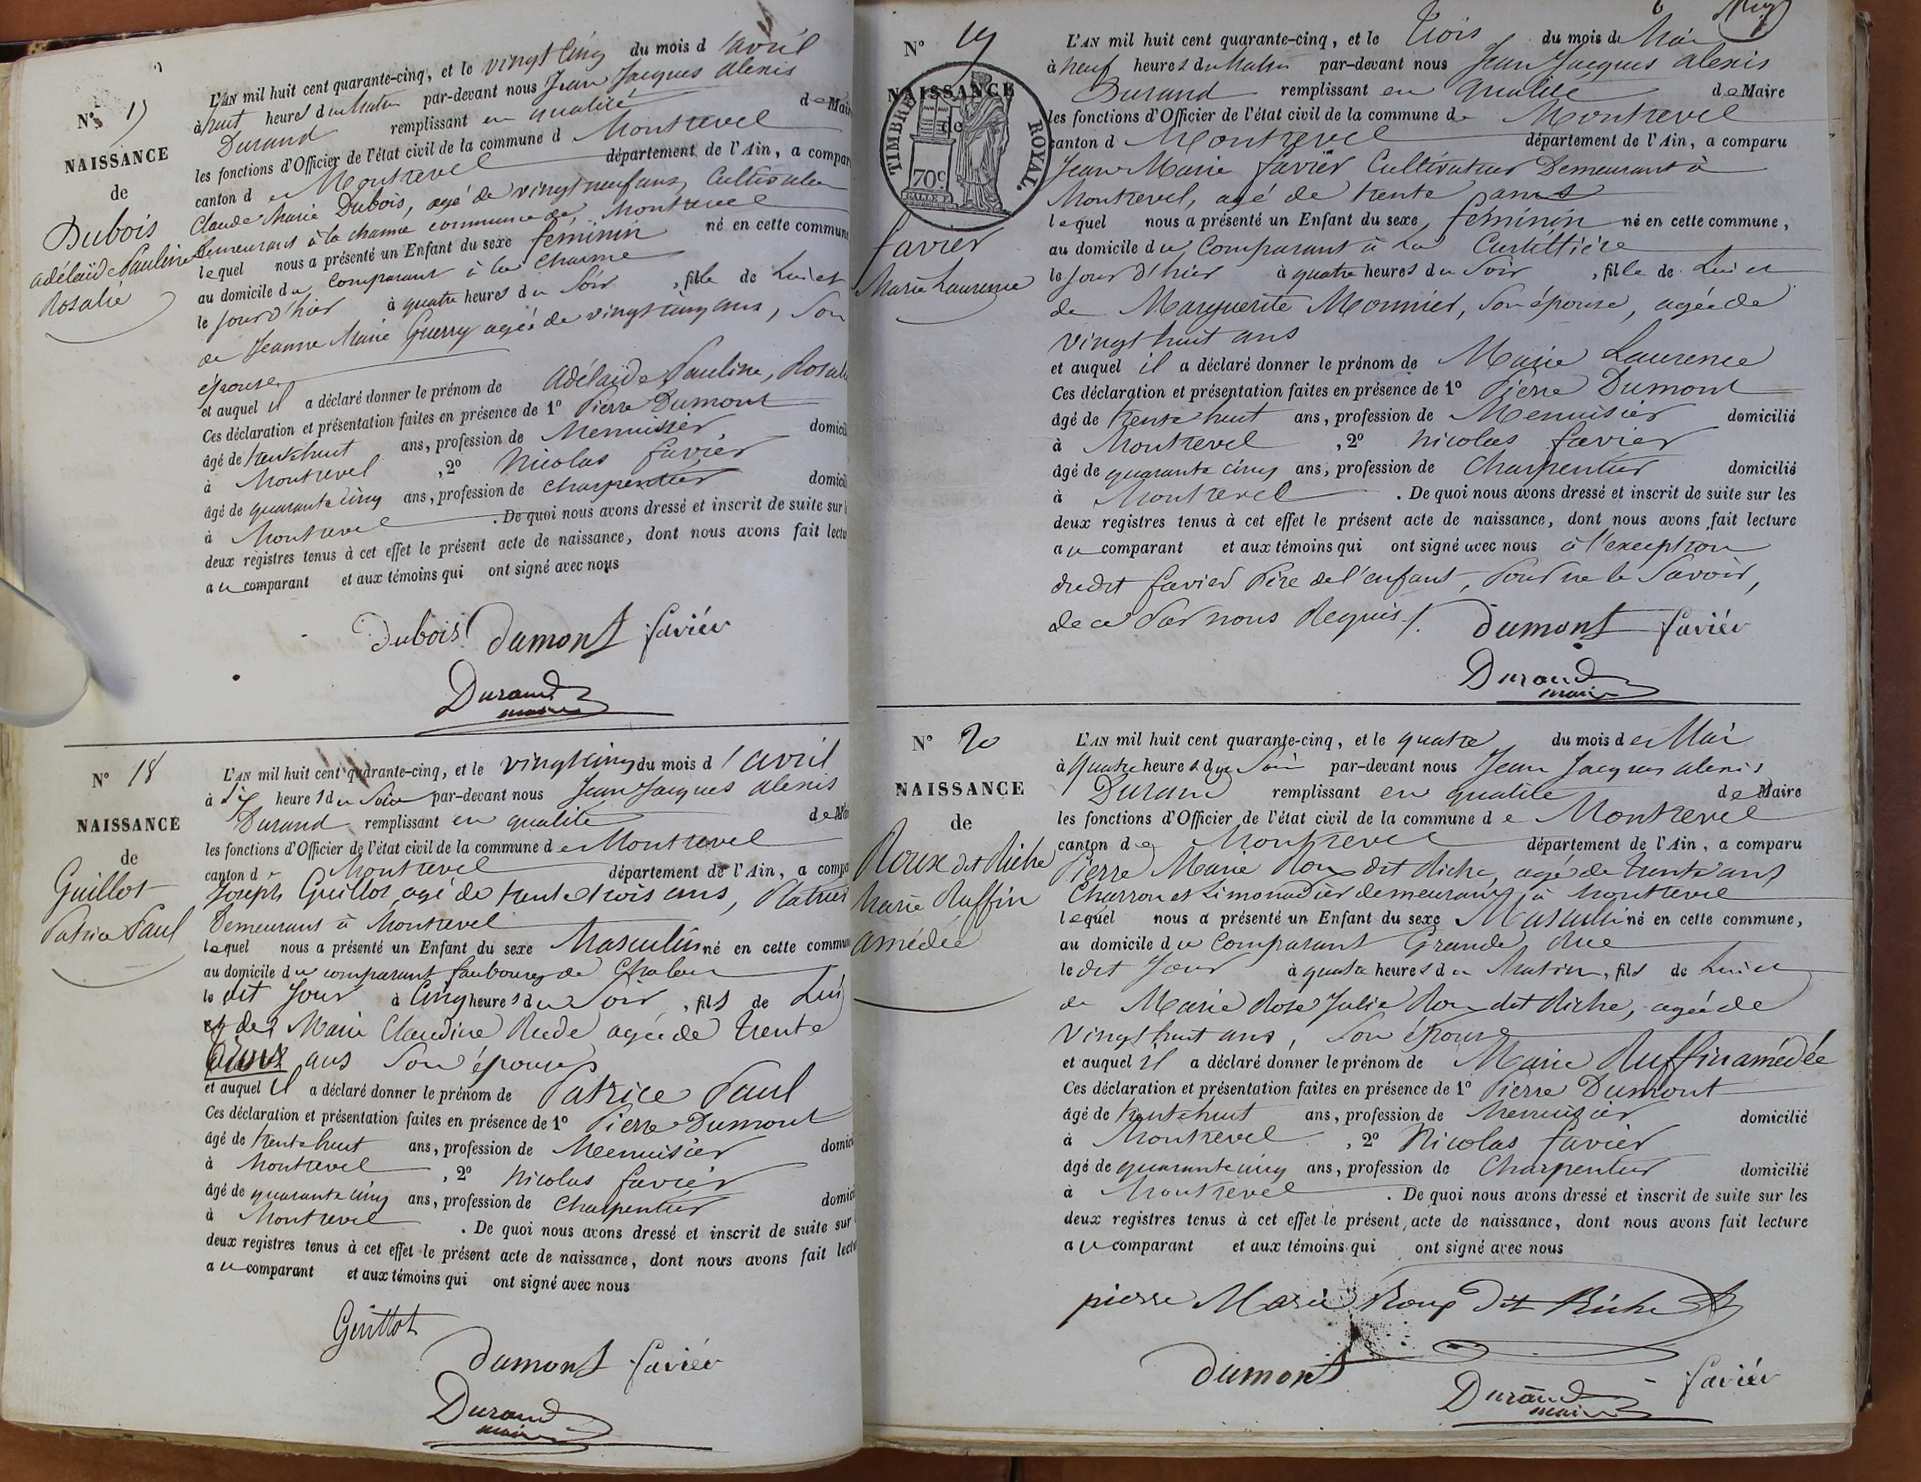 N° 17
NAISSANCE
de
Dubois
adélaïde Pauline
Rosalie
L'AN mil huit cent quarante-cinq, et le vingt cinq du mois d'avril
à huit heures du Matin par-devant nous Jean Jacques alexis
Durand remplissant en qualité de Maire
les fonctions d'Officier de l'état civil de la commune de Montrevel
canton de Montrevel département de l'Ain, a compar
Claude Marie Dubois, agé de vingt neuf ans, Cultivateur
demeurant à la charme commune de Montrevel
lequel nous a présenté un Enfant du sexe féminin né en cette commune
au domicile du comparant à la Charme
le jour d'hier à quatre heures du Soir, fille de Lui et
de Jeanne Marie Guerry agée de vingt cinq ans, Son
épouse
et auquel il a déclaré donner le prénom de adélaïde Pauline, Rosalie
Ces déclaration et présentation faites en présence de 1° Pierre Dumont
âgé de trente huit ans, profession de Menuisier domicil
à Montrevel, 2° Nicolas favier
âgé de quarante cinq ans, profession de charpentier domicil
à Montrevel. De quoi nous avons dressé et inscrit de suite sur l
deux registres tenus à cet effet le présent acte de naissance, dont nous avons fait lectu
au comparant et aux témoins qui ont signé avec nous
Dubois dumont favier
Durand
maire
N° 18
NAISSANCE
de
Guillot
Patrice Paul
L'AN mil huit cent quarante-cinq, et le vingt cinq du mois d'avril
à Six heures du Soir par-devant nous Jean Jacques alexis
Durand remplissant en qualité de Mai
les fonctions d'Officier de l'état civil de la commune de Montrevel
canton de Montrevel département de l'Ain, a compa
Joseph Guillot agé de trente trois ans, Platrier
Demeurant à Montrevel
lequel nous a présenté un Enfant du sexe Masculin né en cette commun
au domicile du comparant faubourg de Chalon
le dit Jour à Cinq heures du Soir, fils de Lui
et de Marie Claudine Rude agée de trente
deux ans Son épouse
et auquel il a déclaré donner le prénom de Patrice Paul
Ces déclaration et présentation faites en présence de 1° Pierre Dumont
âgé de trente huit ans, profession de Menuisier domici
à Montrevel, 2° Nicolas favier
âgé de quarante cinq ans, profession de Charpentier domici
à Montrevel. De quoi nous avons dressé et inscrit de suite sur
deux registres tenus à cet effet le présent acte de naissance, dont nous avons fait lectu
au comparant et aux témoins qui ont signé avec nous
Guillot
dumont favier
Durand
maire
N° 19
NAISSANCE
de
TIMBRE ROYAL.
70c
favier
Marie Laurence
L'AN mil huit cent quarante-cinq, et le trois du mois de Mai
à neuf heures du Matin par-devant nous Jean Jacques alexis
Durand remplissant en qualité de Maire
les fonctions d'Officier de l'état civil de la commune de Montrevel
canton d Montrevel département de l'Ain, a comparu
Jean Marie favier Cultivateur Demeurant à
Montrevel, agé de trente ans
lequel nous a présenté un Enfant du sexe féminin né en cette commune,
au domicile du Comparant à la Curtillière
le jour d'hier à quatre heures du Soir, fille de Lui et
de Marguerite Monnier, Son épouse, agée de
vingt huit ans
et auquel il a déclaré donner le prénom de Marie Laurence
Ces déclaration et présentation faites en présence de 1° Pierre Dumont
âgé de trente huit ans, profession de Menuisier domicilié
à Montrevel, 2° Nicolas favier
âgé de quarante cinq ans, profession de Charpentier domicilié
à Montrevel. De quoi nous avons dressé et inscrit de suite sur les
deux registres tenus à cet effet le présent acte de naissance, dont nous avons fait lecture
au comparant et aux témoins qui ont signé avec nous à l'exception
dudit favier Père de l'enfant, pour ne le Savoir,
de ce par nous Requis /.
dumont favier
Durand
maire
N° 20
NAISSANCE
de
Roux dit Riche
Marie Ruffin
amédée
L'AN mil huit cent quarante-cinq, et le quatre du mois de Mai
à quatre heures du Soir par-devant nous Jean Jacques alexis
Durand remplissant en qualité de Maire
les fonctions d'Officier de l'état civil de la commune de Montrevel
canton de Montrevel département de l'Ain, a comparu
Pierre Marie Roux dit Riche, agé de trente ans
Charron et Limonadier demeurant à Montrevel
lequel nous a présenté un Enfant du sexe Masculin né en cette commune,
au domicile du Comparant Grande Rue
le dit Jour à quatre heures du Matin, fils de Lui et
de Marie Rose Julie Roux dit Riche, agée de
vingt huit ans, Son épouse
et auquel il a déclaré donner le prénom de Marie Ruffin amédée
Ces déclaration et présentation faites en présence de 1° Pierre Dumont
âgé de trente huit ans, profession de Menuisier domicilié
à Montrevel, 2° Nicolas favier
âgé de quarante cinq ans, profession de Charpentier domicilié
à Montrevel. De quoi nous avons dressé et inscrit de suite sur les
deux registres tenus à cet effet le présent acte de naissance, dont nous avons fait lecture
au comparant et aux témoins qui ont signé avec nous
pierre Marie Roux dit Riche
dumont favier
Durand
maire